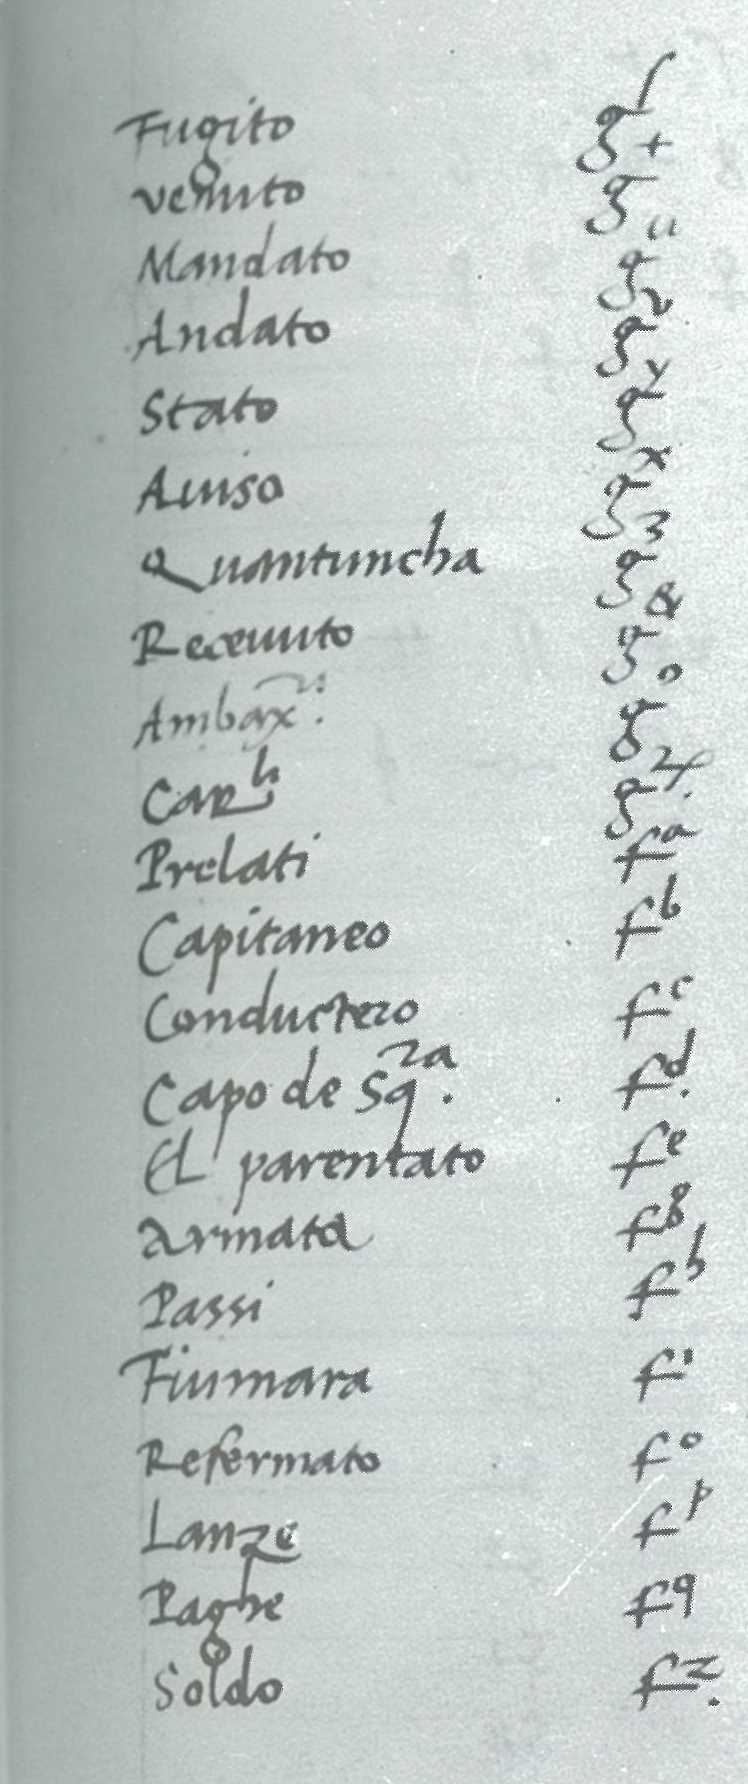 Fugito gſ
venuto g+
Mandato gu
Andato gv
Stato gy
Auiso gx
Quantuncha g3
Receuuto g&
Ambax.ri g9
Cap.li g4.
Prelati fa
Capitaneo fb
Conductero fc
Capo de Sq.ra fd.
El parentato fe
Armata fg
Passi fh
Fiumara fi
Refermato fo
Lanze fp
Paghe fq
Soldo fz.